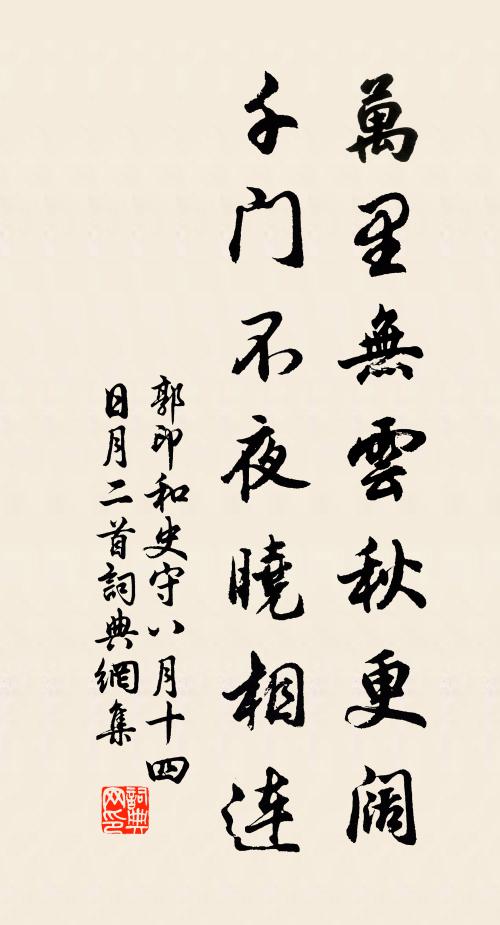 萬里無雲秋更阔
千门不夜曉相连
郭印和史守八月十四
日月二首詞典網集
詞典网印